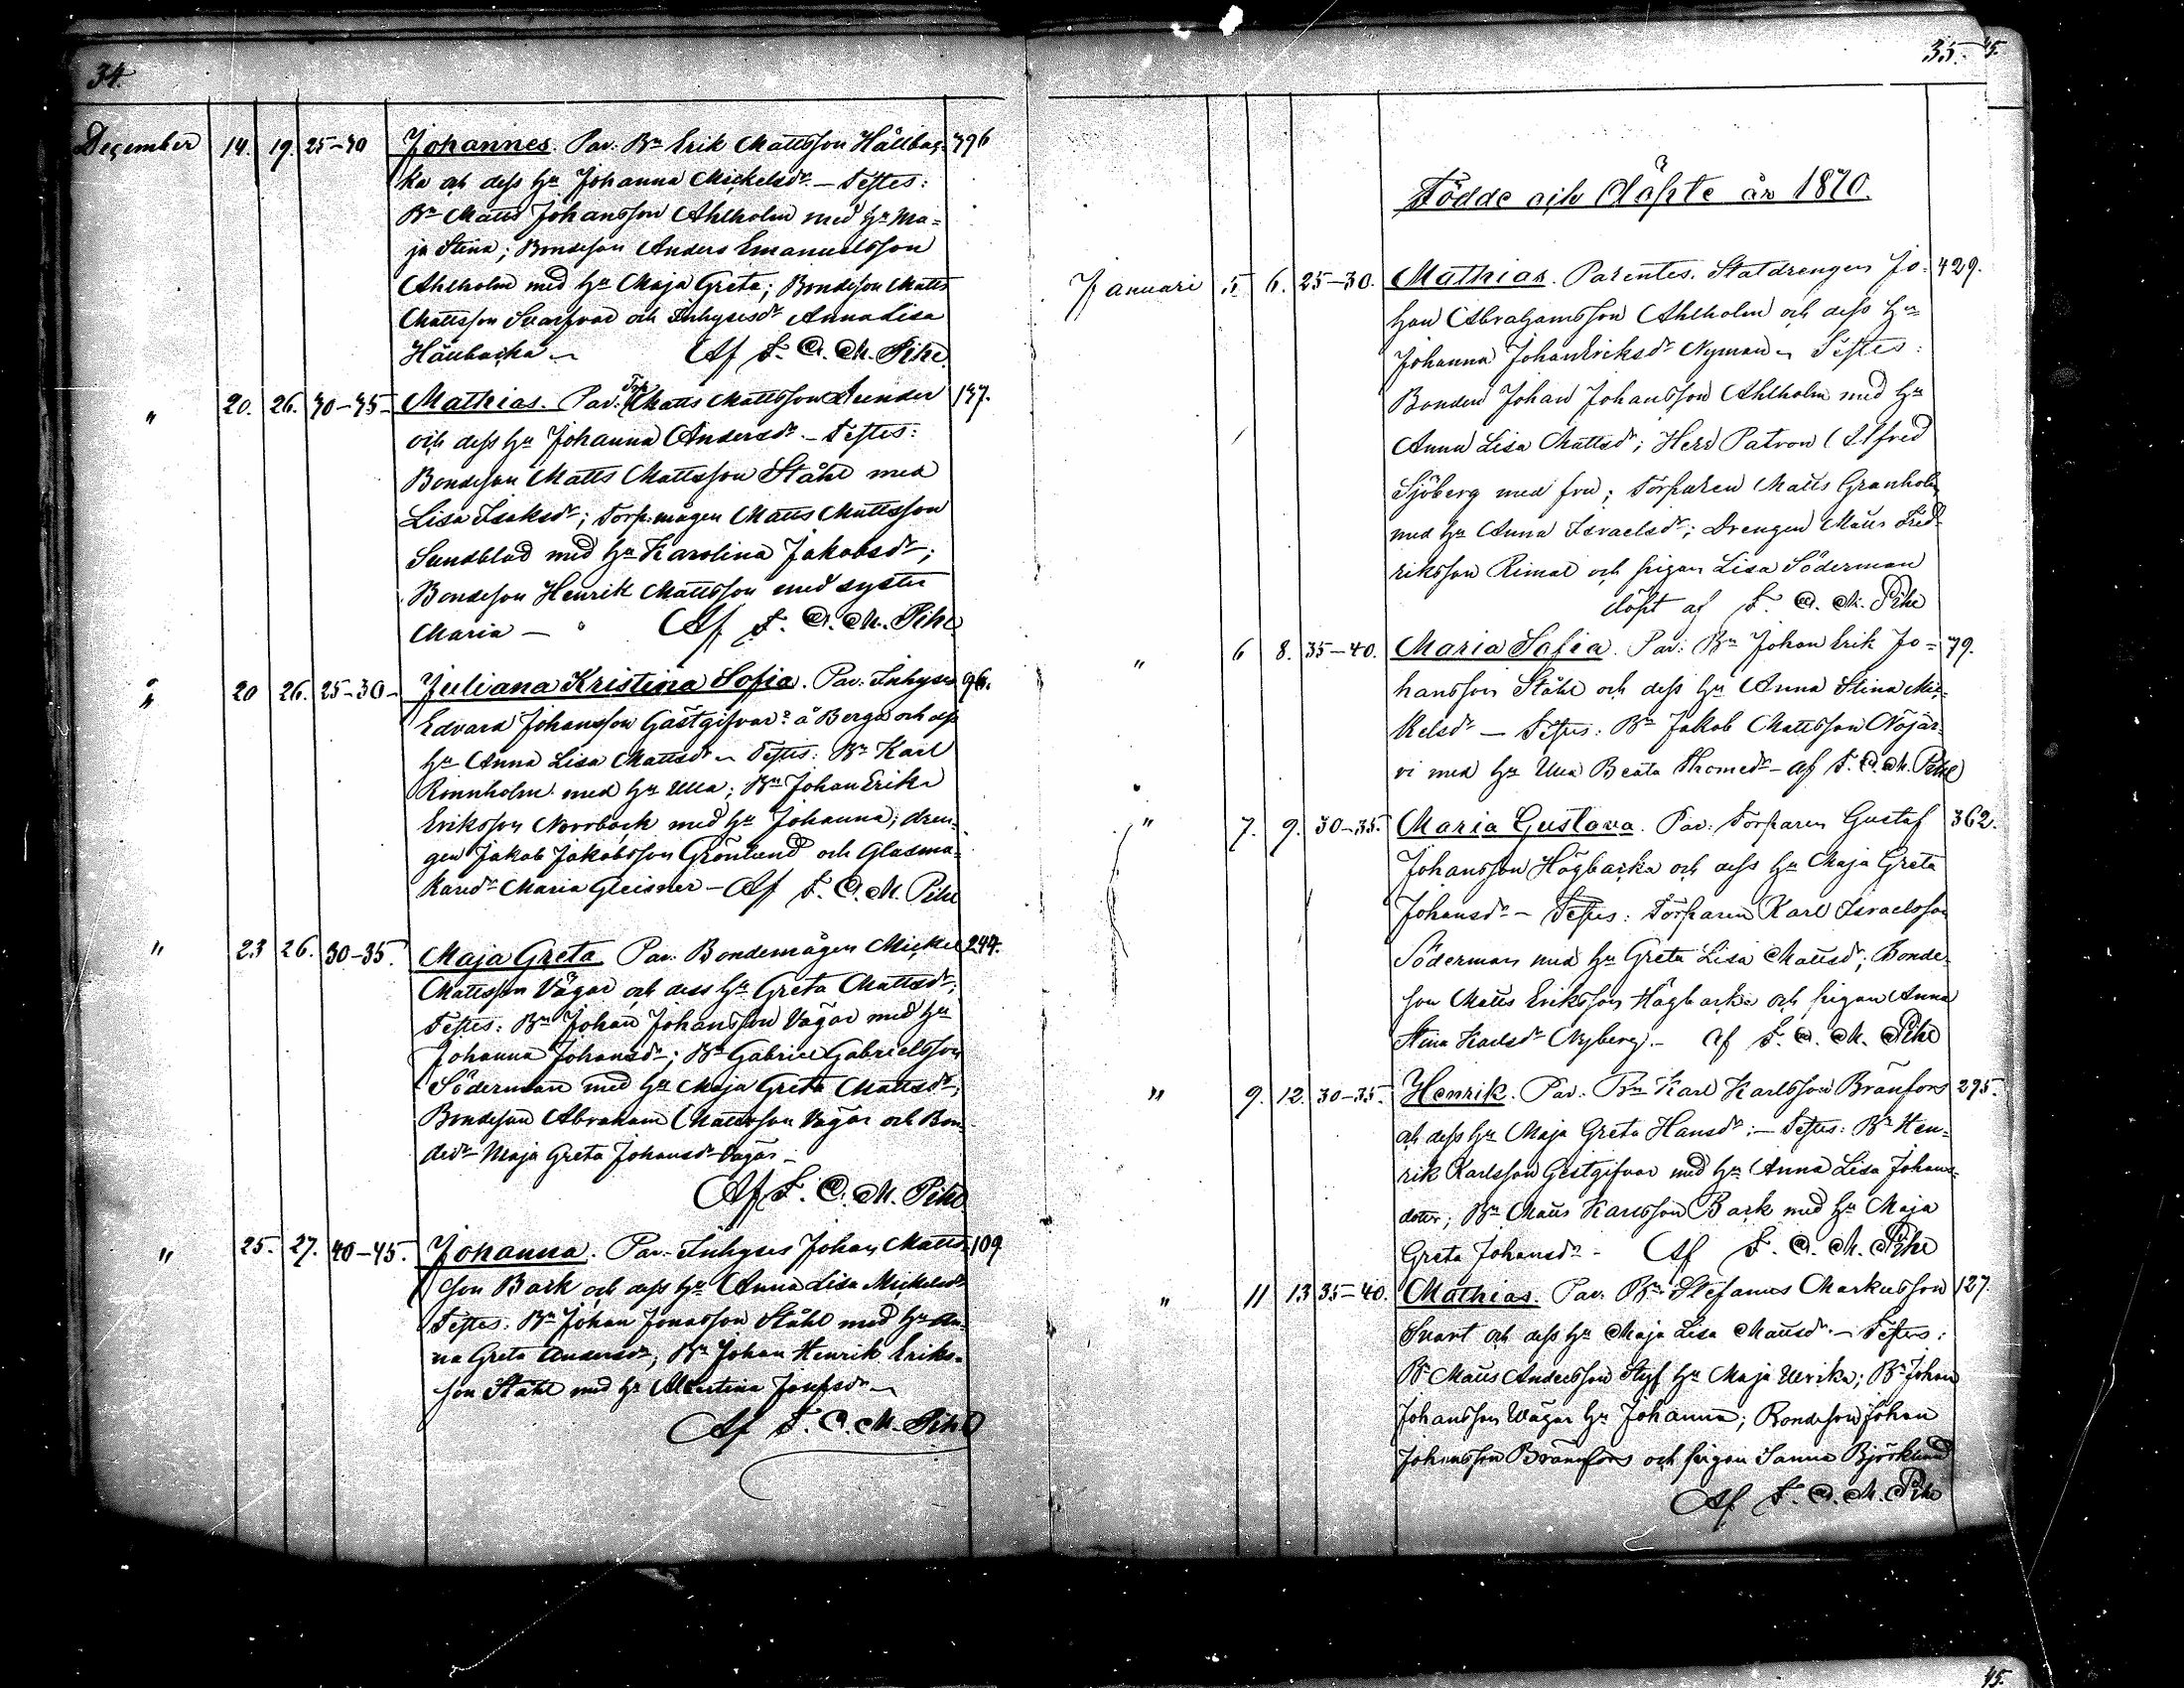 34.
December 14. 19. 25-30 Johannes. Par: Bn Erik Mattsson Hällbac- 396
ka och dess Hu Johanna Mickelsdr. – Testes:
Bn Matts Johansson Ahlholm med Hu Ma=
ja Stina; Bondeson Anders Emanuelsson
Ahlholm med Hu Maja Greta; Bondeson Matts
Mattsson Svarfvar och Inhysesdr Anna Lisa
Hällbacka – Af F. O. M. Pihl.
" 20. 26. 40-45- Mathias. Par: Torp. Matts Mattsson Sunder 147.
och dess Hu Johanna Andersdr. – Testes:
Bondeson Matts Mattsson Ståhl med
Lisa Isaksdr; Torp:mågen Matts Mattsson
Sundblad med Hu Karolina Jakobsdr;
Bondeson Henrik Mattsson med syster
Maria – Af F. O. M. Pihl
" 20 26. 25-30- Juliana Kristina Sofia. Par: Inhyses 96.
Edvard Johansson Gästgifvar å Berga och dess
Hu Anna Lisa Mattsdr – Testes: Bn Karl
Rönnholm med Hu Ulla; Bn Johan Erik
Eriksson Norrback med Hu Johanna; dren-
gen Jakob Jakobsson Grönlund och Glasma-
karedr Maria Gleisner – Af F. O. M. Pihl
" 23 26. 30-35. Maja Greta. Par: Bondemågen Mickel 244.
Mattsson Vägar och dess Hu Greta Mattsdr;
Testes: Bn Johan Johansson Vägar med Hu
Johanna Johansdr; Bn Gabriel Gabrielsson
Söderman med Hu Maja Greta Mattsdr;
Bondeson Abraham Mattsson Vägar och Bon-
dedr Maja Greta Johansdr Vägar –
Af F. O. M. Pihl
" 25. 27. 40-45. Johanna. Par: Inhyses Johan Matts- 109
son Back och dess Hu Anna Lisa Mickelsdr
Testes: Bn Johan Jonasson Ståhl med Hu An-
na Greta Andersdr; Bn Johan Henrik Eriks-
son Ståhl med Hu Albertina Josefsdr –
Af F. O. M. Pihl
35.
Födde och Döpte år 1870.
Januari 5. 6. 25-30. Mathias. Parentes. Statdrengen Jo- 429.
han Abrahamsson Ahlholm och dess Hu
Johanna Johan Eriksdr Nyman – Testes:
Bonden Johan Johansson Ahlholm med Hu
Anna Lisa Mattsdr; Herr Patron Alfred
Sjöberg med fru; Torparen Matts Granholm
med Hu Anna Israelsdr; Drengen Matts Fred-
riksson Rimal och pigan Lisa Söderman
döpt af F. O. M. Pihl
" 6 8. 35-40. Maria Sofia. Par: Bn Johan Erik Jo= 79.
hansson Ståhl och dess Hu Anna Stina Mic-
kelsdr – Testes: Bn Jakob Mattsson Nöjär-
vi med Hu Ulla Beata Thomedr – af F. O. M. Pihl
" 7. 9. 30-35. Maria Gustava. Par: Torparen Gustaf 362.
Johansson Högbacka och dess Hu Maja Greta
Johansdr – Testes: Torparen Karl Israelsson
Söderman med Hu Greta Lisa Mattsdr; Bonde-
son Matts Eriksson Högbacka och pigan Anna
Stina Karlsdr Nyberg. – af F. O. M. Pihl
" 9. 12. 30-35. Henrik. Par: Bn Karl Karlsson Brännfors 295.
och dess Hu Maja Greta Hansdr; – Testes: Bn Hen-
rik Karlsson Gestgifvar med Hu Anna Lisa Johans-
doter; Bn Matts Karlsson Back med Hu Maja
Greta Johansdr – Af F. O. M. Pihl
" 11 13 35-40. Mathias. Par: Bn Stefanus Markusson 127.
Svart och dess Hu Maja Lisa Mattsdr. – Testes:
Bn Matts Andersson Styf Hu Maja Ulrika; Bn Johan
Johansson Wägar Hu Johanna; Bondeson Johan
Johansson Brännfors och pigan Sanna Björklund
Af F. O. M. Pihl
45.